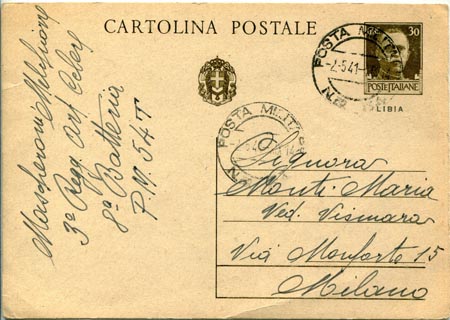 CARTOLINA POSTALE
30
POSTE ITALIANE
LIBIA
POSTA MILITARE
-2.5.41
N.
POSTA MILITARE
N.
Mascheroni Melchiorre
3° Regg. Art. Celere
8a Batteria
P.M. 54 T
Signora
Monti Maria
Ved. Vismara
Via Monforte 15
Milano